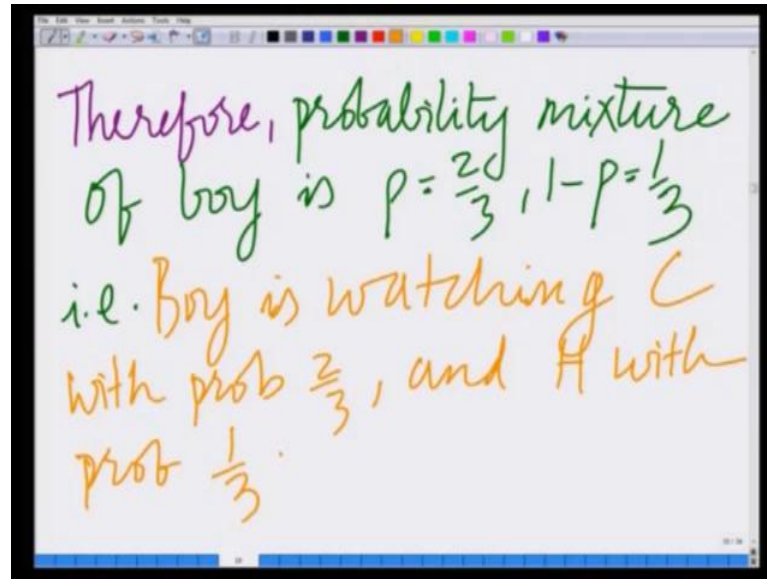 File Edit View Insert Actions Tools Help
Therefore, probability mixture
of boy is p = 2/3, 1 - p = 1/3
i.e. Boy is watching C
with prob 2/3, and H with
prob 1/3.